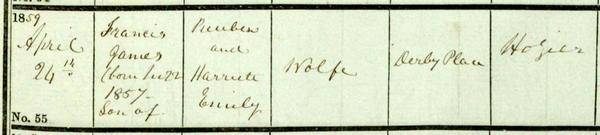 1859
April
24th
Francis
James
(born
1857
Son of
Reuben
and
Harriett
Emily
Wolfe
Derby Place
Hosier
No. 55